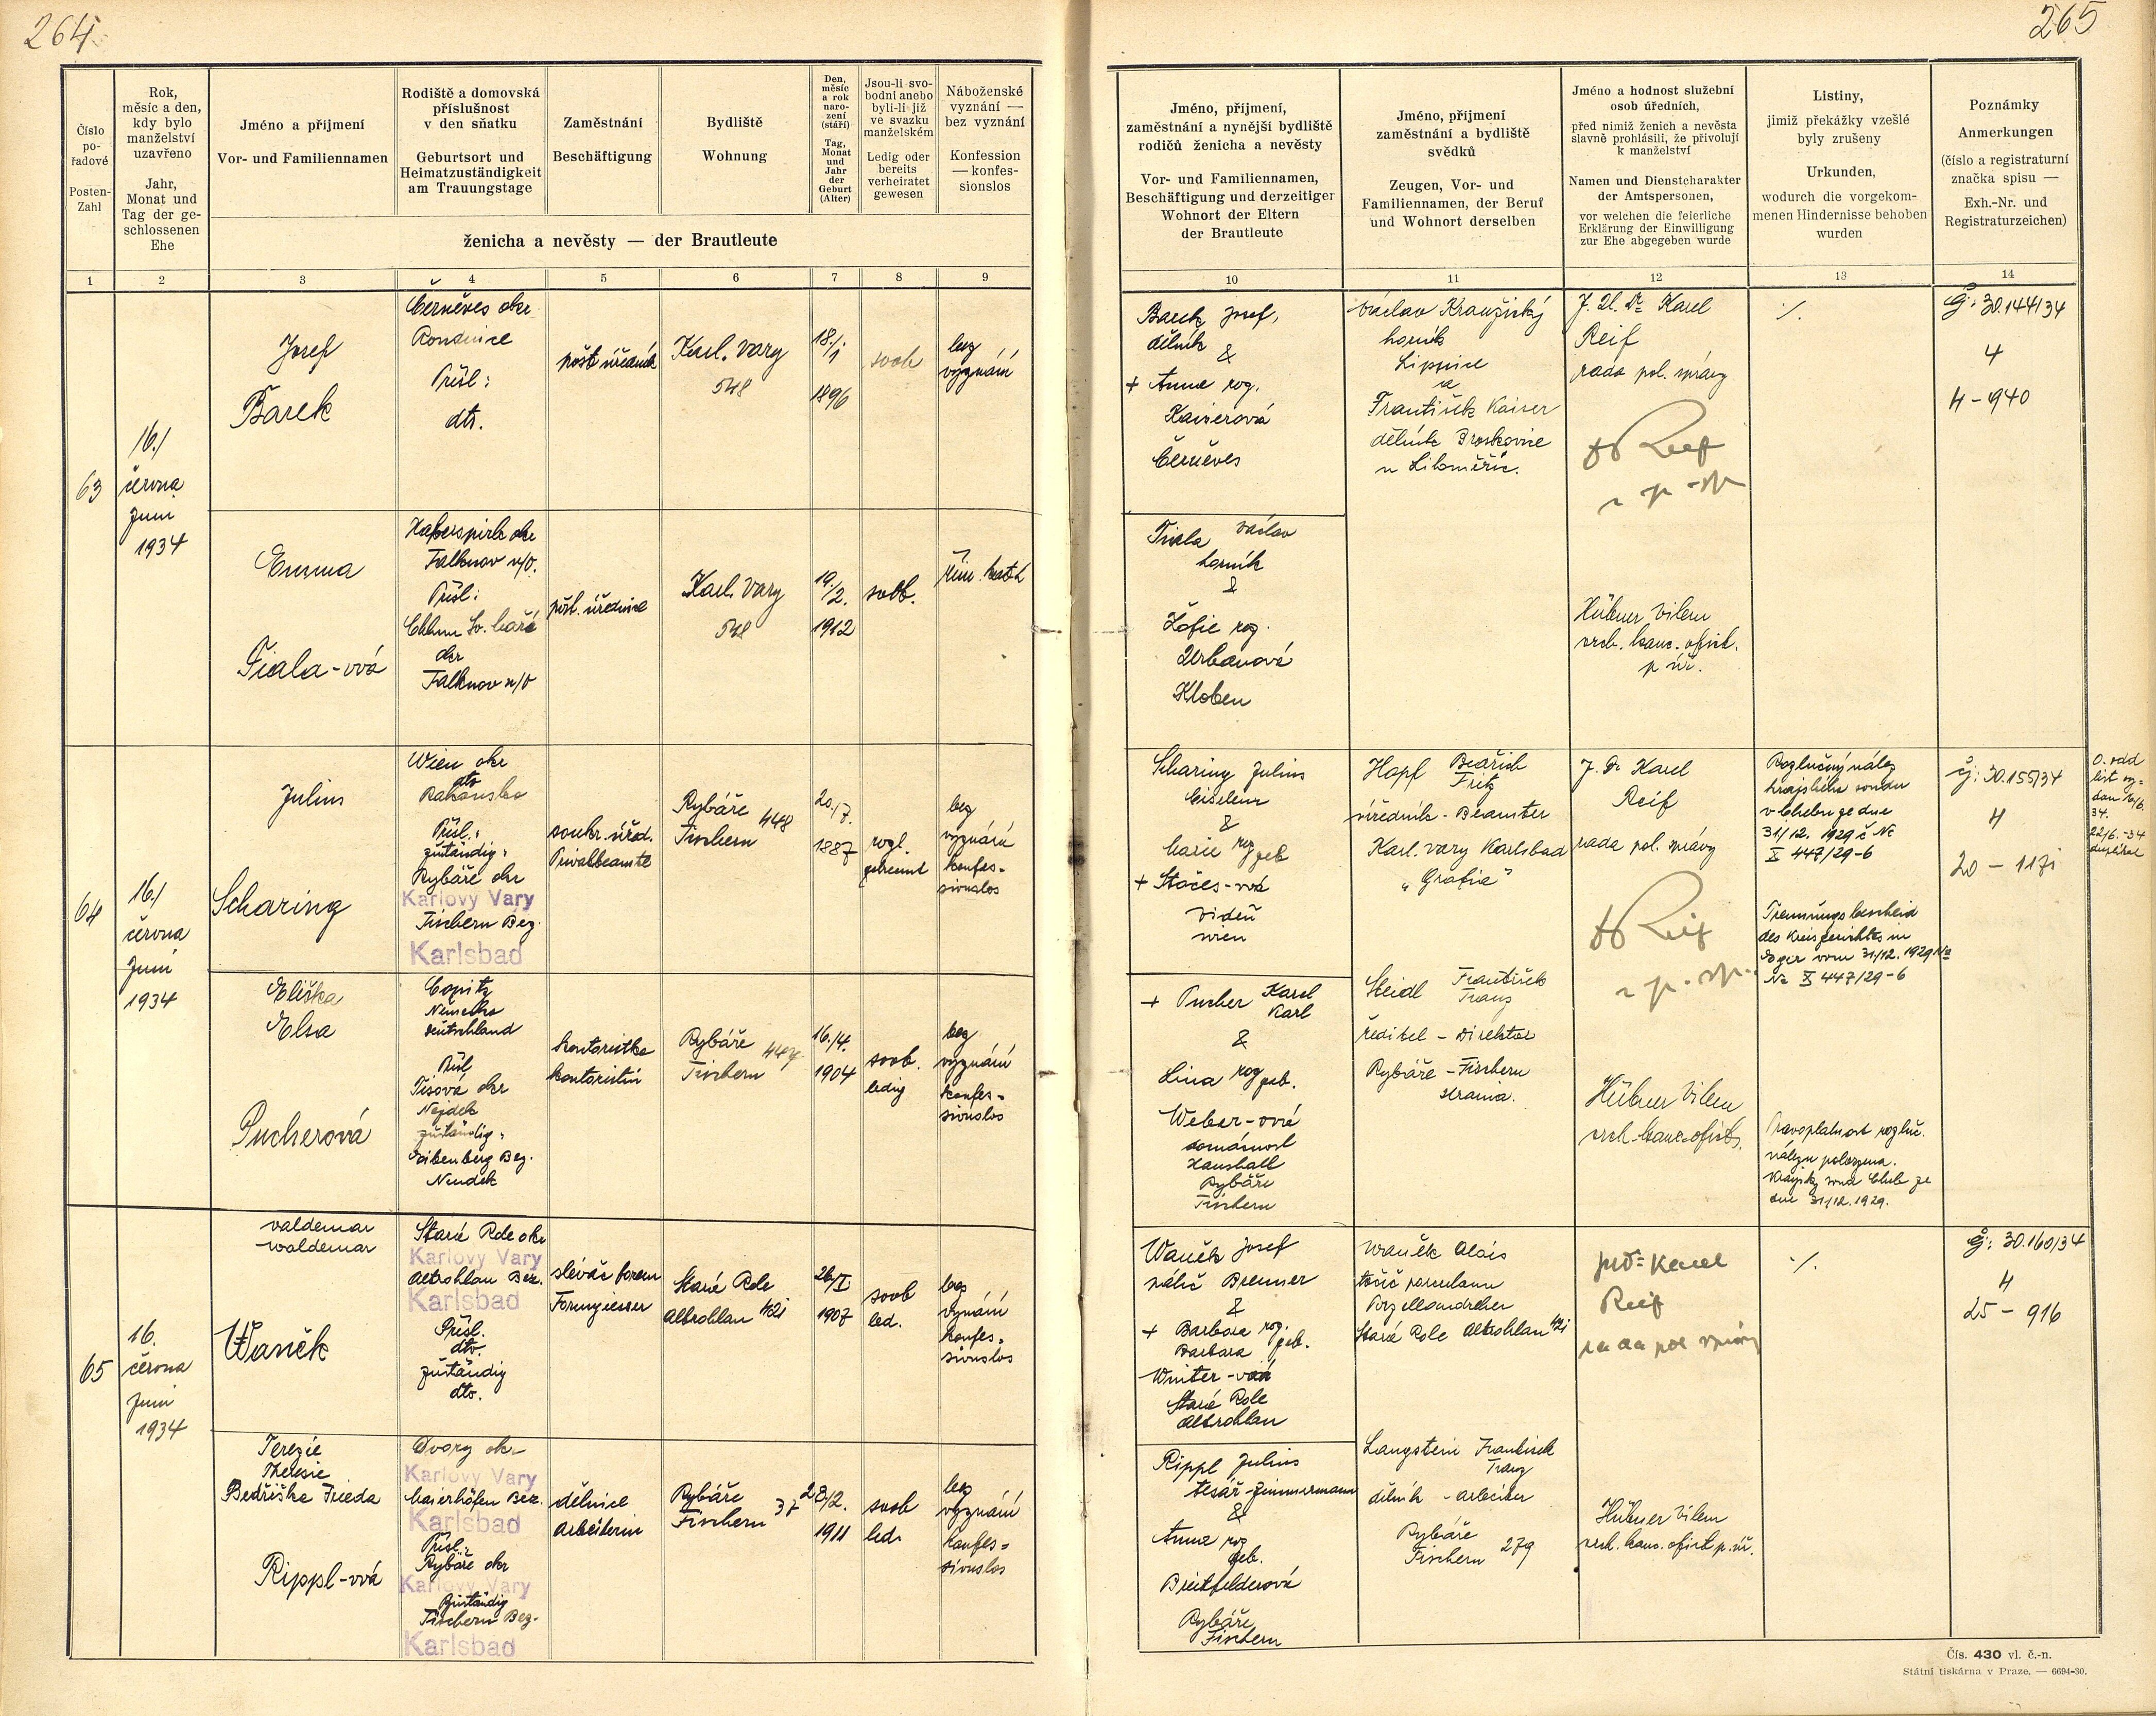 264
265
Číslo
po-
řadové
Posten-
Zahl
Rok,
měsíc a den,
kdy bylo
manželství
uzavřeno
Jahr,
Monat und
Tag der ge-
schlossenen
Ehe
Jméno a příjmení
Vor- und Familiennamen
Rodiště a domovská
příslušnost
v den sňatku
Geburtsort und
Heimatzuständigkeit
am Trauungstage
Zaměstnání
Beschäftigung
Bydliště
Wohnung
Den,
měsíc
a rok
naro-
zení
(stáří)
Tag,
Monat
und
Jahr
der
Geburt
(Alter)
Jsou-li svo-
bodni anebo
byli-li již
ve svazku
manželském
Ledig oder
bereits
verheiratet
gewesen
Náboženské
vyznání —
bez vyznání
Konfession
— konfes-
sionslos
ženicha a nevěsty — der Brautleute
Jméno, příjmení,
zaměstnání a nynější bydliště
rodičů ženicha a nevěsty
Vor- und Familiennamen,
Beschäftigung und derzeitiger
Wohnort der Eltern
der Brautleute
Jméno, příjmení
zaměstnání a bydliště
svědků
Zeugen, Vor- und
Familiennamen, der Beruf
und Wohnort derselben
Jméno a hodnost služební
osob úředních,
před nimiž ženich a nevěsta
slavně prohlásili, že přivolují
k manželství
Namen und Dienstcharakter
der Amtspersonen,
vor welchen die feierliche
Erklärung der Einwilligung
zur Ehe abgegeben wurde
Listiny,
jimiž překážky vzešlé
byly zrušeny
Urkunden,
wodurch die vorgekom-
menen Hindernisse behoben
wurden
Poznámky
Anmerkungen
(číslo a registraturní
značka spisu —
Exh.-Nr. und
Registraturzeichen)
1 2 3 4 5 6 7 8 9 10 11 12 13 14
63
16./
června
Juni
1934
Josef
Barek
Černěves okr
Roudnice
Přísl:
dto.
pošt úředník
Karl. Vary
548
18./1
1896
svob
bez
vyznání
Barek Josef,
dělník
&
+ Anna roz.
Kaiserová
Černěves
horník
Lipnice
a
František Kaiser
dělník
J. U. Dr. Karel
Reif
rada pol. správy
Čj: 30.144/34
4
4-940
Emma
Fiala-ová
Falknov n/O.
Přísl:
okr
Falknov n/O
pošt. úřednice
Karl. Vary
548
19./2.
1912
svob.
řím. kath
Fiala Václav
horník
&
Žofie roz.
Urbanová
Kloben
Hübner Vilem
vrch. kanc. ofici.
p úř.
64
16./
června
Juni
1934
Julius
Scharing
Wien okr
dto
Rakousko
Přísl.:
zuständig:
Rybáře okr
Karlovy Vary
Fischern Bez.
Karlsbad
soukr. úřed.
Privatbeamte
Rybáře 448
Fischern
20./7.
1887
rozl.
getrennt
bez
vyznání
konfes-
sionslos
Scharing Julius
&
Marie roz geb
vídeň
wien
Hopf Bedřich
Fritz
úředník - Beamter
Karl. Vary Karlsbad
„Grafia"
J. Dr Karel
Reif
rada pol. správy
Rozlučný nález
krajského soudu
v Chebu ze dne
31/12. 1929 č Nc
X 447/29-6
Trennungsbescheid
des Kreisgerichtes in
Eger vom 31/12. 1929
Nc X 447/29-6
Čj: 30.155/34
4
Eliška
Elsa
Pucherová
Copitz
Německo
Deutschland
Přísl
Tisová okr
Nejdek
zuständig:
Eibenberg Bez.
Neudek
kontoristka
kontoristin
Rybáře 447
Fischern
16./4.
1904
svob.
ledig
bez
vyznání
konfes-
sionslos
+ Pucher Karel
Karl
&
Lina roz geb.
Weber-ová
domácnost
Haushalt
Rybáře
Fischern
Seidl František
Franz
ředitel - Direktor
Rybáře - Fischern
Hübner Vilem
vrch. kanc. ofici.
Pravoplatnost rozluč.
nálezu potvrzena.
Krajský soud Cheb ze
dne 31/12. 1929.
65
16.
června
Juni
1934
Valdemar
Waldemar
Waněk
Stará Role okr
Karlovy Vary
Altrohlau Bez.
Karlsbad
Přísl.
dto.
zuständig
dto.
slévač forem
Formgiesser
Stará Role
Altrohlau 421
26/I
1907
svob
led.
bez
vyznání
konfes-
sionslos
Waněk Josef
palič Brenner
&
+ Barbora roz.
Barbara geb.
Winter-ová
Stará Role
Altrohlau
Waněk Alois
točič porcelanu
Porzellandreher
Stará Role Altrohlau 421
JUDr Karel
Reif
rada pol správy
Čj: 30.160/34
4
25 - 916
Terezie
Theresie
Bedřiška Frieda
Rippl-ová
Dvory okr
Karlovy Vary
Maierhöfen Bez.
Karlsbad
Přísl.:
Rybáře okr
Karlovy Vary
Zuständig
Fischern Bez.
Karlsbad
dělnice
Arbeiterin
Rybáře 37
Fischern
28/2.
1911
svob
led.
bez
vyznání
konfes-
sionslos
Rippl Julius
tesař-Zimmermann
&
Anna roz
geb.
Breitfelderová
Rybáře
Fischern
Langstein František
Franz
dělník - Arbeiter
Rybáře 279
Fischern
Hübner Vilem
vrch. kanc. ofici p. úř.
Čís. 430 vl. č.-n.
Státní tiskárna v Praze. — 6694-30.